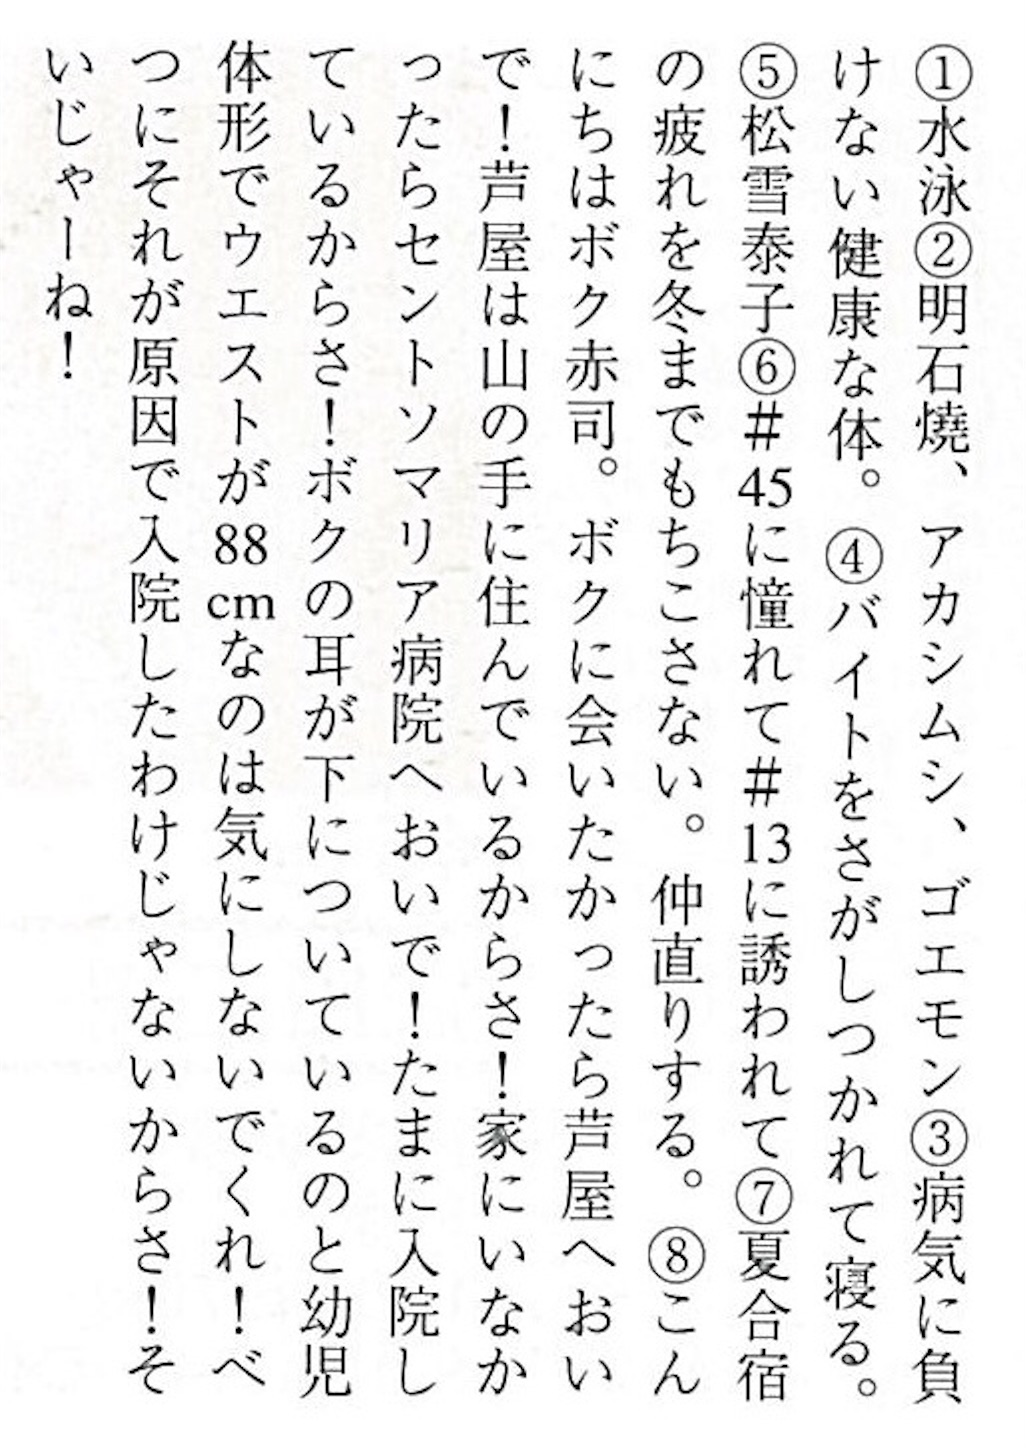 ①水泳②明石燒、アカシムシ、ゴエモン③病気に負
けない健康な体。④バイトをさがしつかれて寝る。
⑤松雪泰子⑥＃45に憧れて＃13に誘われて⑦夏合宿
の疲れを冬までもちこさない。仲直りする。⑧こん
にちはボク赤司。ボクに会いたかったら芦屋へおい
で！芦屋は山の手に住んでいるからさ！家にいなか
ったらセントソマリア病院へおいで！たまに入院し
ているからさ！ボクの耳が下についているのと幼児
体形でウエストが88cmなのは気にしないでくれ！べ
つにそれが原因で入院したわけじゃないからさ！そ
いじゃーね！